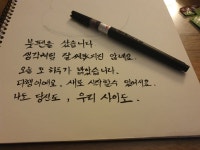 붓펜을 샀습니다
생각처럼 잘 써지지 않네요.
오늘 또 하루가 갔습니다.
다행이에요. 새로 시작할 수 있어서요.
나도, 당신도, 우리 사이도.